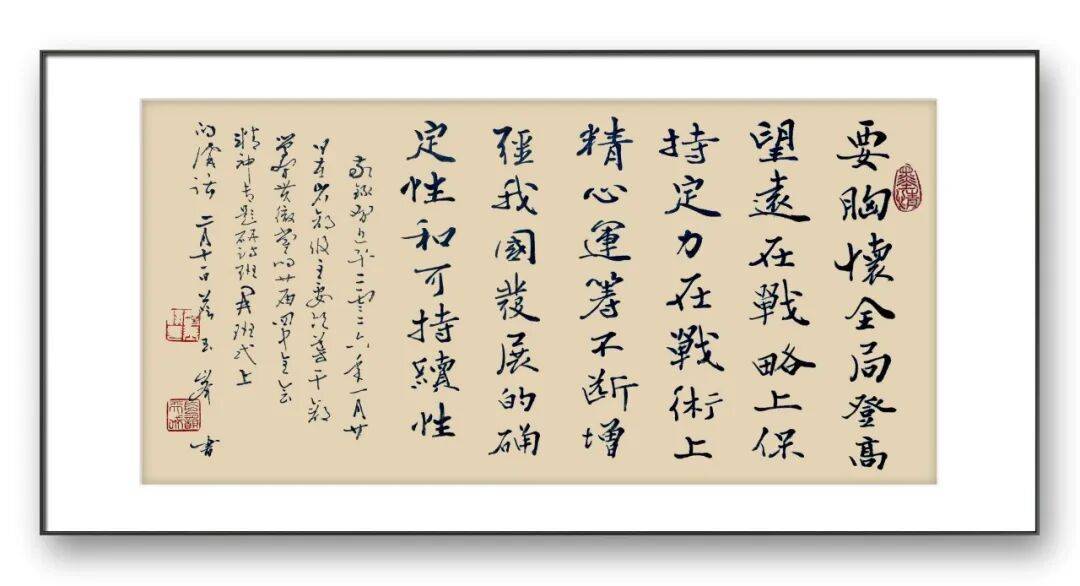 要胸懷全局登高
望遠在戰略上保
持定力在戰術上
精心運籌不斷增
彊我國發展的确
定性和可持續性
敬錄習近平二零二六年一月廿
日在省部级主要领導干部
學習貫徹黨的廿届四中全会
精神专題研討班開班式上
的講話 二月十日 玉峯 書